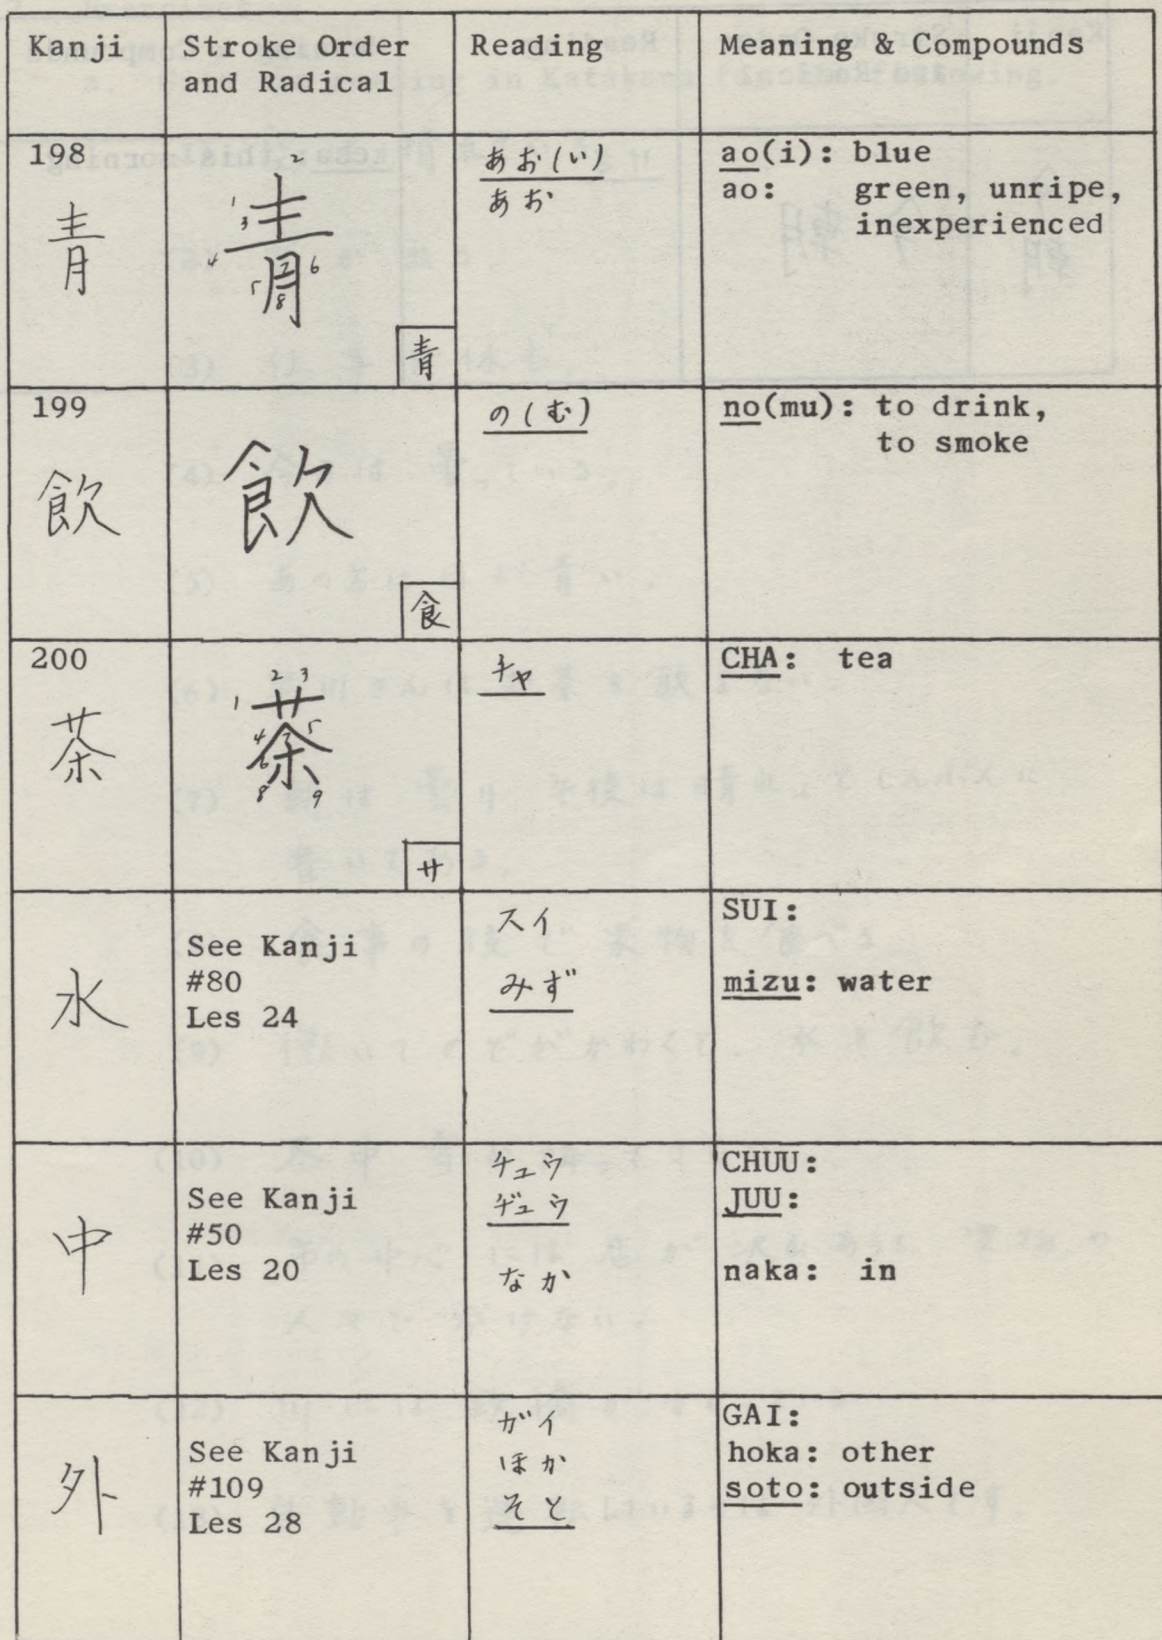 Kanji
Stroke Order
and Radical
Reading
Meaning & Compounds
198
青
1 2 3 4 5 6 7 8
青
青
あお(い)
あお
ao(i): blue
ao: green, unripe,
inexperienced
199
飲
飲
食
の(む)
no(mu): to drink,
to smoke
200
茶
1 2 3 4 5 6 7 8 9
茶
サ
チャ
CHA: tea
水
See Kanji
#80
Les 24
スイ
みず
SUI:
mizu: water
中
See Kanji
#50
Les 20
チュウ
ヂュウ
なか
CHUU:
JUU:
naka: in
外
See Kanji
#109
Les 28
ガイ
ほか
そと
GAI:
hoka: other
soto: outside